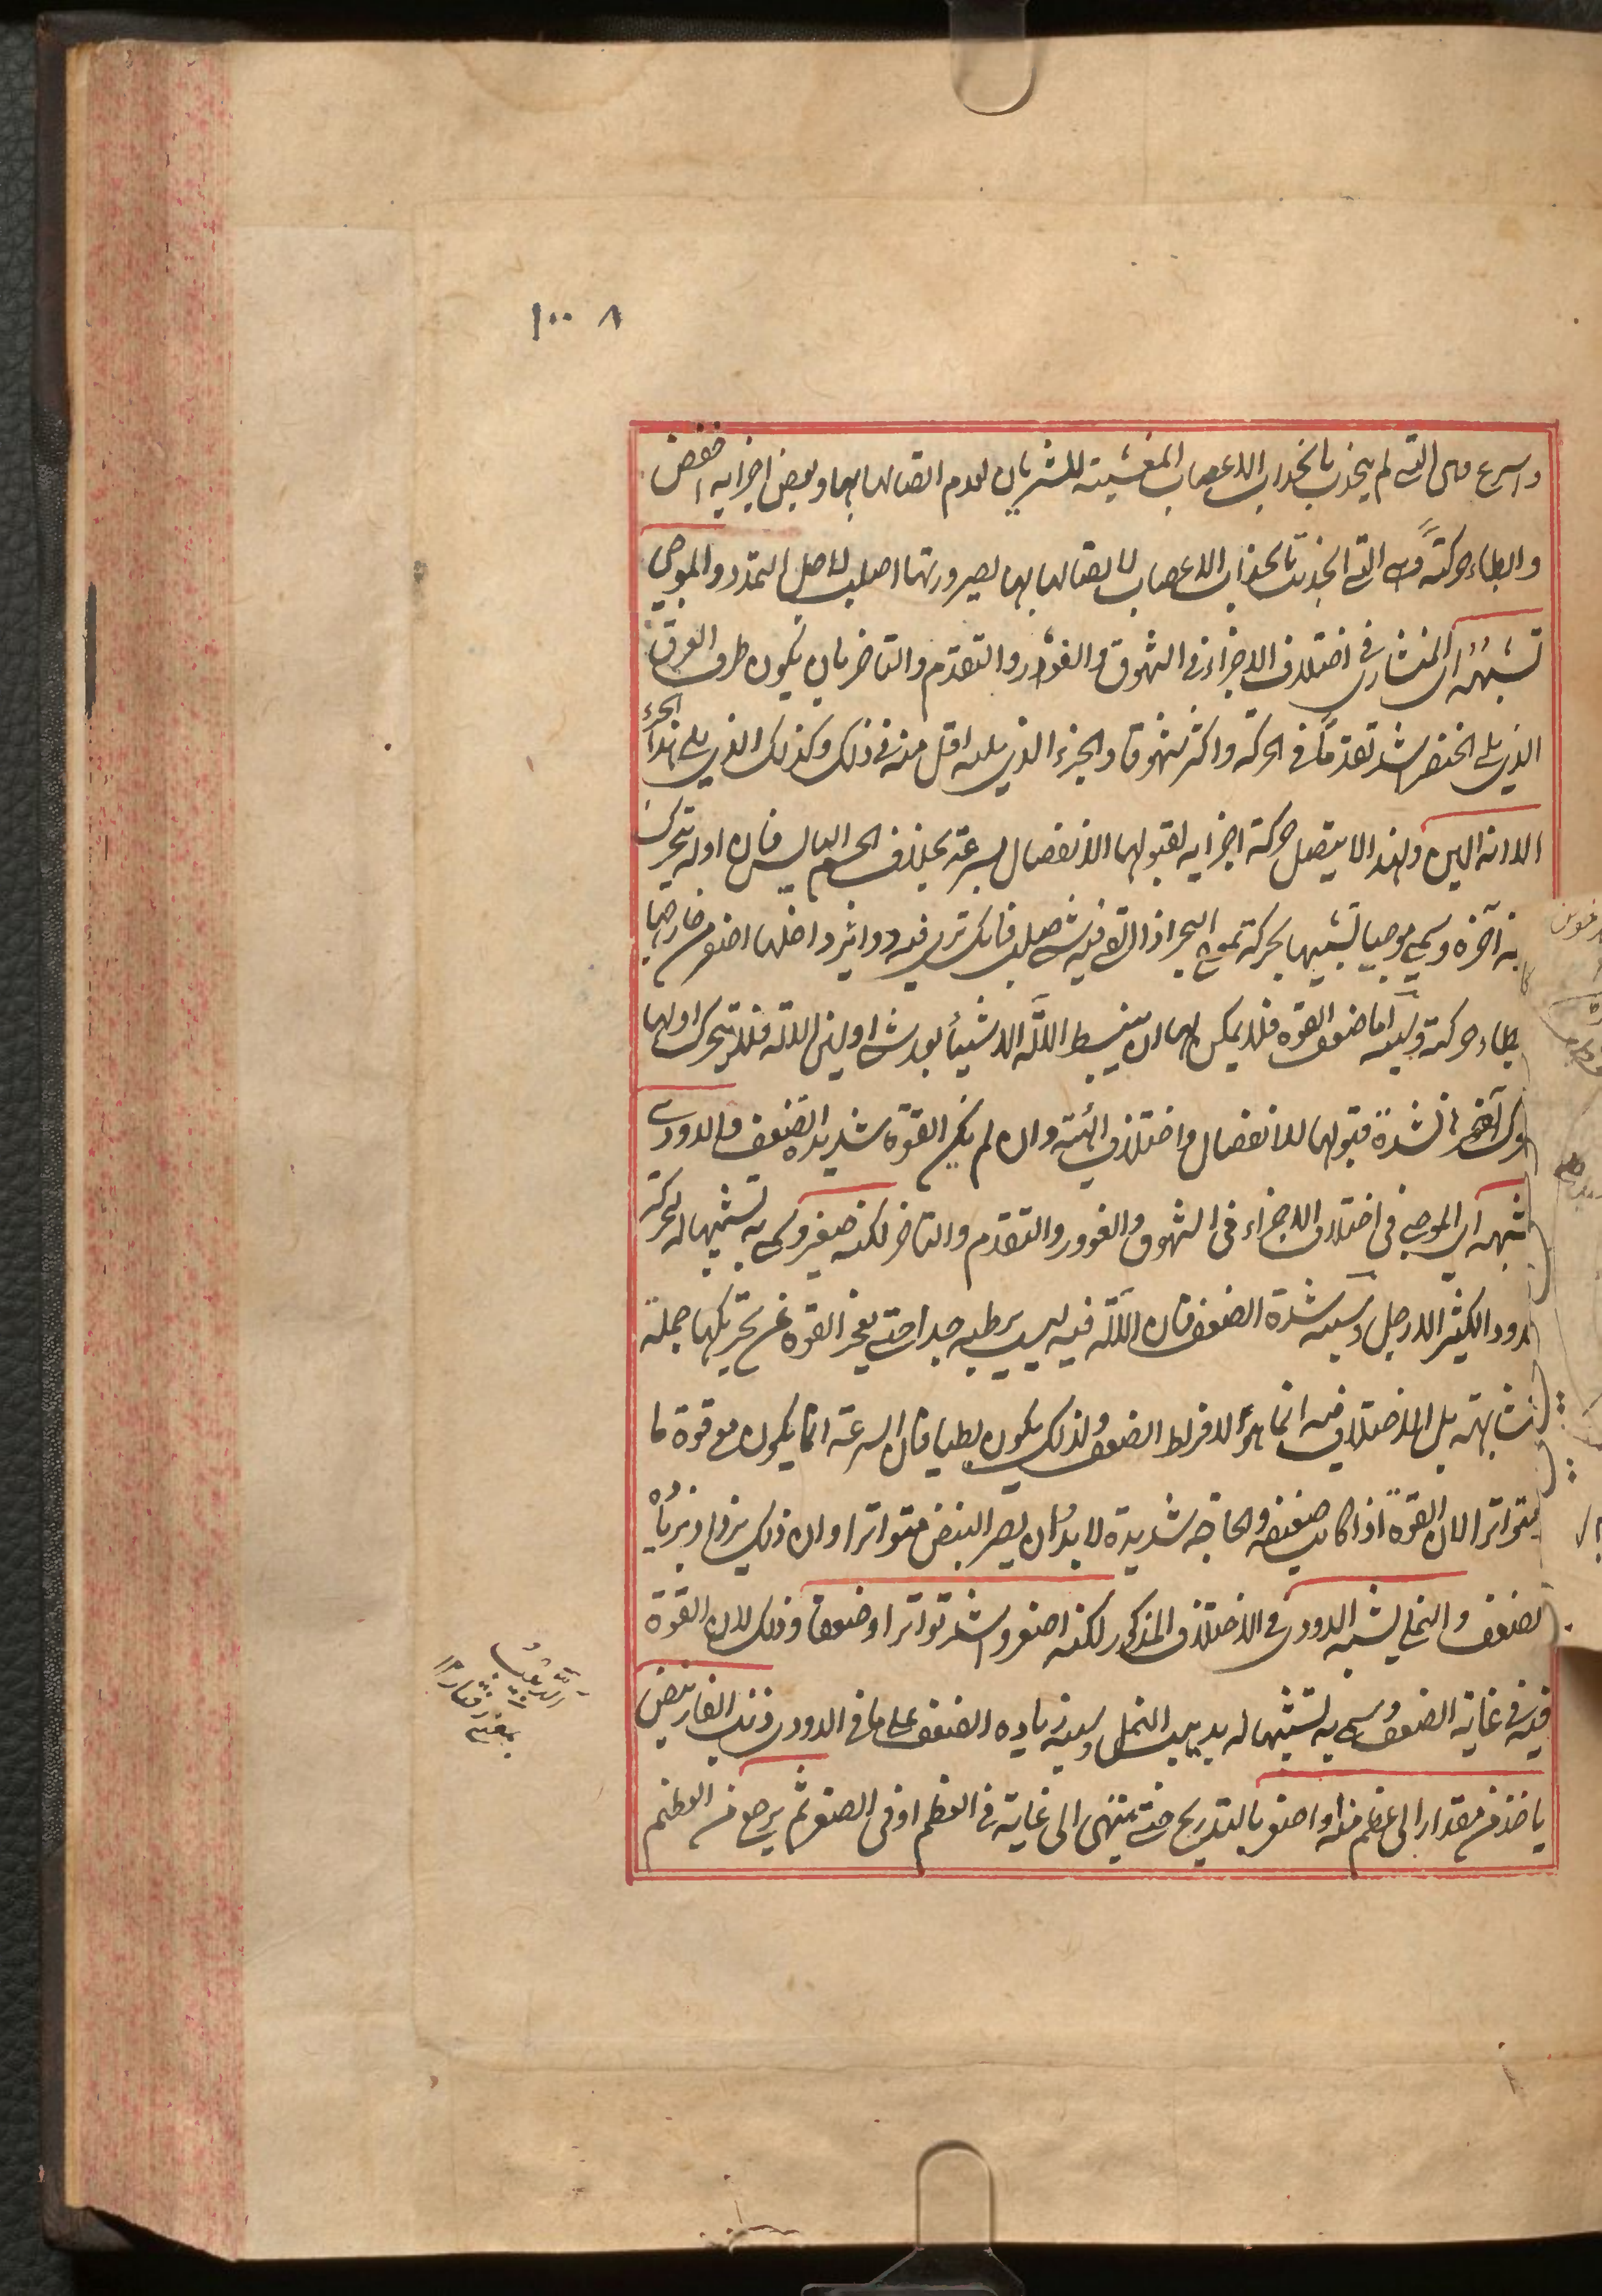 ١٠٠ ٨
واسرع وهى التى لم ينجذب بانجذاب الاعصاب المغشيته للشريان لعدم اتصالها بها وبعض اجزايه اخفض
وابطاء حركته وهى التى انجذبت بانجذاب الاعصاب لاتصالها بها لصيرورتها اصلب لاجل التمدد والموجى
تشبهه اى المنشارى فى اختلاف الاجزاء فى الشهوق والغوور والتقدم والتاخر بان يكون طرف العرق
الذى يلى الخنصر اشد تقدما فى الحركة واكثر شهوقا والجزء الذى يليه اقل منه فى ذلك وكذلك الذى يلى هذا الجزء
الا انه الين ولهذا لا يتصل حركة اجزايه لقبولها الانفصال بسرعة بخلاف الجسم اليابس فان اوله يتحرك
آخره وسمى موجيا تشبيها بحركة تموج البحر اذا القى فيه شئ صلب فانك ترى فيه دواير داخلها اصغر من خارجها
بطاء حركته وسببه اما ضعف القوة فلا يمكن لها ان ينبسط الآلة الا شيئا بعد شئ او لين الآلة فلا يتحرك اولها
آخرها لشدة قبولها للانفصال واختلاف الهيئة وان لم يكن القوة شديد الضعف والدودى
شبهه اى الموجى فى اختلاف الاجزاء فى الشهوق والغوور والتقدم والتاخر لكنه صغير وسمى به تشبيها له لحركته
الدود الكثير الارجل وسببه شدة الضعف فان الآلة فيه ليست برطبه جدا حتى يعجز القوة عن تحريكها جملة
متشابهة بل الاختلاف فيه انما هو لافراط الضعف ولذلك يكون بطيا فان السرعة انما يكون مع قوة ما
متواترا لان القوة اذا كانت ضعيفه والحاجه شديدة لا بد ان يصير النبض متواترا وان ذلك يزداد بزيادة
الضعف والنملى يشبه الدودى فى الاختلاف المذكور لكنه اصغر واشد تواترا وضعفا وذلك لان القوة
فيه فى غاية الضعف وسمى به تشبيها له بدبيب النمل وسببه زياده الضعف على ما فى الدودى وذنب الفار نبض
ياخذ من مقدار الى اعظم منه او اصغر بالتدريج حتى ينتهى الى غاية فى العظم او فى الصغر ثم يرجع من العظم
رفتار ١٢
بمعنى